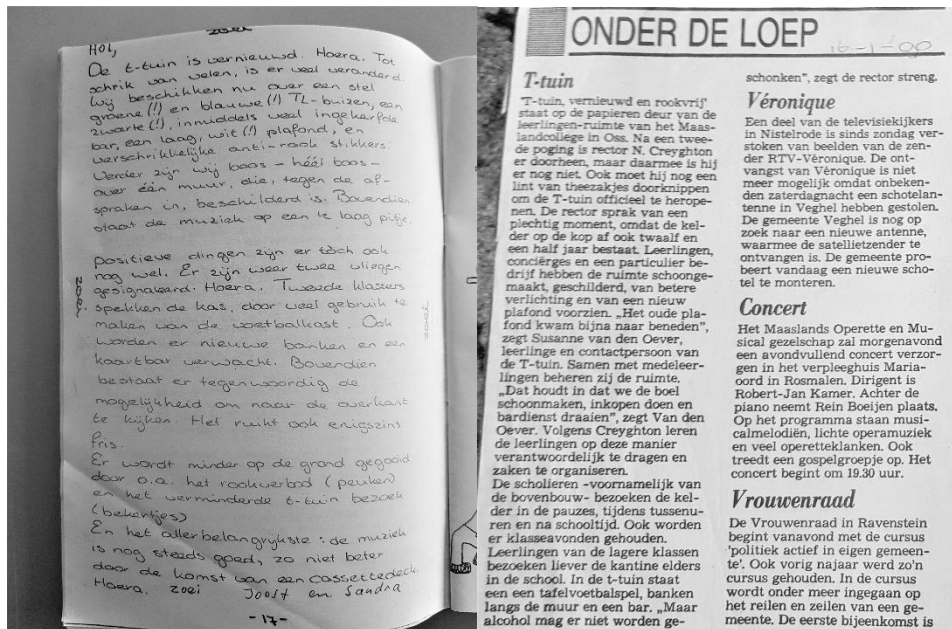 zoei
HOI,
De t-tuin is vernieuwd. Hoera. Tot
schrik van velen, is er veel veranderd.
Wij beschikken nu over een stel
groene (!) en blauwe (!) TL-buizen, een
zwarte (!), inmiddels veel ingekerfde
bar, een laag, wit (!) plafond, en
verschrikkelijke anti-rook stikkers!
Verder zijn wij boos - héél boos -
over één muur, die, tegen de af-
spraken in, beschilderd is. Bovendien
staat de muziek op een te laag pitje.
Positieve dingen zijn er tòch ook
nog wel. Er zijn weer twee vliegen
gesignaleerd. Hoera. Tweede klassers
spekken de kas, door veel gebruik te
maken van de voetbalkast. Ook
worden er nieuwe banken en een
kaartbar verwacht. Bovendien
bestaat er tegenwoordig de
mogelijkheid om naar de overkant
te kijken. Het ruikt ook enigszins
fris.
Er wordt minder op de grond gegooid
door o.a. het rookverbod (peuken)
en het verminderde t-tuin bezoek
(bekertjes)
En het allerbelangrijkste: de muziek
is nog steeds goed, zo niet beter
door de komst van een cassettedeck.
Hoera. zoei Joost en Sandra
- 17 -
zoei
zoei
ONDER DE LOEP
16-1-'00
T-tuin
'T-tuin, vernieuwd en rookvrij'
staat op de papieren deur van de
leerlingen-ruimte van het Maas-
landcollege in Oss. Na een twee-
de poging is rector N. Creyghton
er doorheen, maar daarmee is hij
er nog niet. Ook moet hij nog een
lint van theezakjes doorknippen
om de T-tuin officieel te herope-
nen. De rector sprak van een
plechtig moment, omdat de kel-
der op de kop af ook twaalf en
een half jaar bestaat. Leerlingen,
conciërges en een particulier be-
drijf hebben de ruimte schoonge-
maakt, geschilderd, van betere
verlichting en van een nieuw
plafond voorzien. „Het oude pla-
fond kwam bijna naar beneden”,
zegt Susanne van den Oever,
leerlinge en contactpersoon van
de T-tuin. Samen met medeleer-
lingen beheren zij de ruimte.
„Dat houdt in dat we de boel
schoonmaken, inkopen doen en
bardienst draaien”, zegt Van den
Oever. Volgens Creyghton leren
de leerlingen op deze manier
verantwoordelijk te dragen en
zaken te organiseren.
De scholieren -voornamelijk van
de bovenbouw- bezoeken de kel-
der in de pauzes, tijdens tussenu-
ren en na schooltijd. Ook worden
er klasseavonden gehouden.
Leerlingen van de lagere klassen
bezoeken liever de kantine elders
in de school. In de t-tuin staat
een een tafelvoetbalspel, banken
langs de muur en een bar. „Maar
alcohol mag er niet worden ge-
schonken”, zegt de rector streng.
Véronique
Een deel van de televisiekijkers
in Nistelrode is sinds zondag ver-
stoken van beelden van de zen-
der RTV-Véronique. De ont-
vangst van Véronique is niet
meer mogelijk omdat onbeken-
den zaterdagnacht een schotelan-
tenne in Veghel hebben gestolen.
De gemeente Veghel is nog op
zoek naar een nieuwe antenne,
waarmee de satellietzender te
ontvangen is. De gemeente pro-
beert vandaag een nieuwe scho-
tel te monteren.
Concert
Het Maaslands Operette en Mu-
sical gezelschap zal morgenavond
een avondvullend concert verzor-
gen in het verpleeghuis Maria-
oord in Rosmalen. Dirigent is
Robert-Jan Kamer. Achter de
piano neemt Rein Boeijen plaats.
Op het programma staan musi-
calmelodiën, lichte operamuziek
en veel operetteklanken. Ook
treedt een gospelgroepje op. Het
concert begint om 19.30 uur.
Vrouwenraad
De Vrouwenraad in Ravenstein
begint vanavond met de cursus
'politiek actief in eigen gemeen-
te'. Ook vorig najaar werd zo'n
cursus gehouden. In de cursus
wordt onder meer ingegaan op
het reilen en zeilen van een ge-
meente. De eerste bijeenkomst is